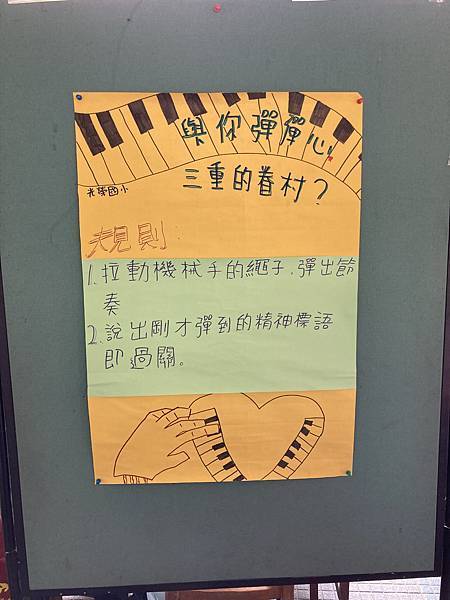 與你彈彈心
三重的眷村？
光榮國小
規則：
1.拉動機械手的繩子，彈出節
奏
2.說出剛才彈到的精神標語
即過關。